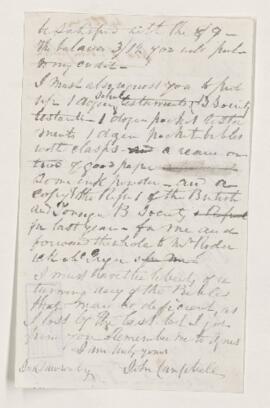 be satisfied with the £9 -
the balance 3/1½ you will put
to my credit -
I must also request you to put
up 1 dozen testaments B Society
1 dozen pocket testa
ments 1 dozen pocket bibles
with clasps - a ream or
two of good paper
Some ink powder - and a
copy of the Report of the British
and Foreign B Society
for last year - for me and
forward the whole to Mr
I must have the liberty of re
turning any of the Bibles
that may be deficient, as
I lost by the last lot I got
from you Remember me to Agnes
I am truly yours
John Campbell